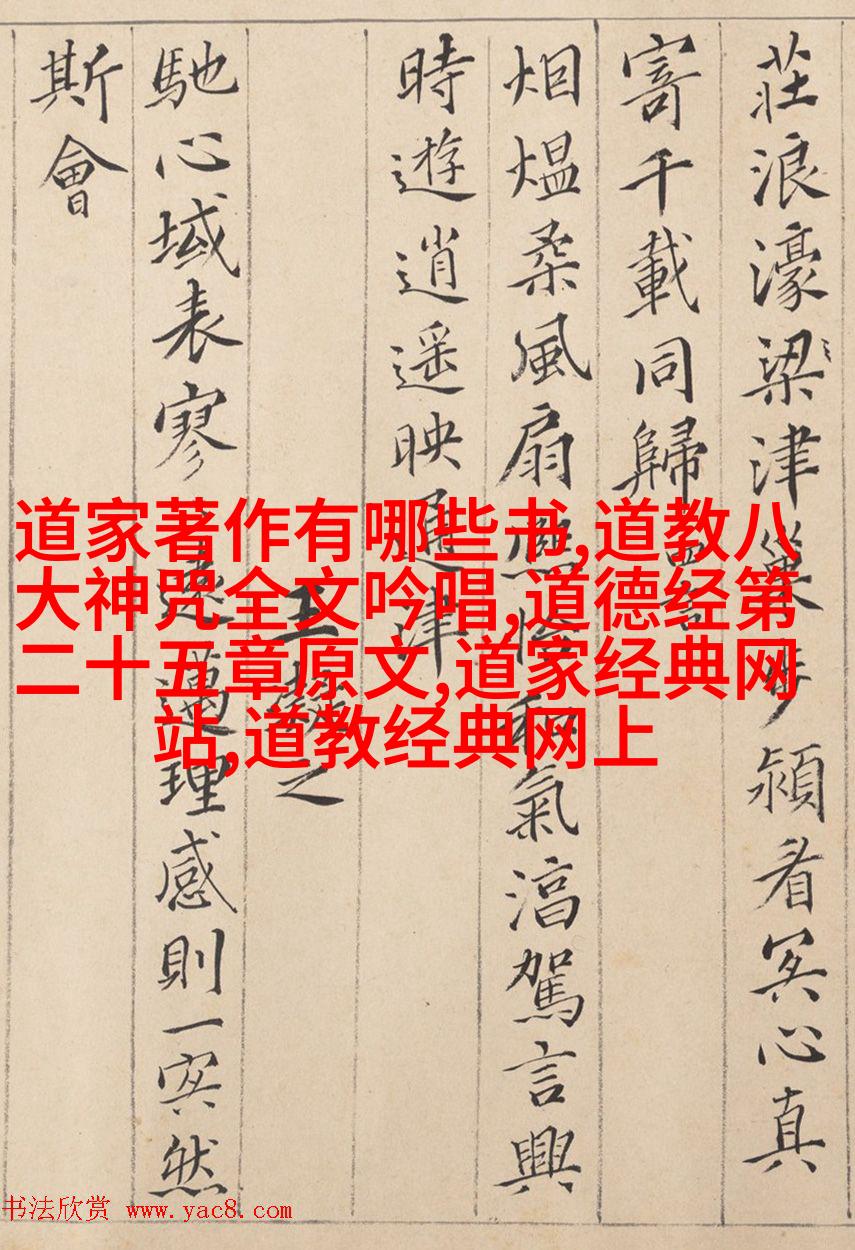 莊浪濠梁津巢步潁看冥心真
寄千載同歸
烟煴柔風扇熙怡和氣湻駕言興
時遊逍遥映通津
王之
馳心域表寥遠邁理感則一冥然
斯會
道家著作有哪些书,道教八
大神咒全文吟唱,道德经第
二十五章原文,道家经典网
站,道教经典网上
书法欣赏 www.yac8.com